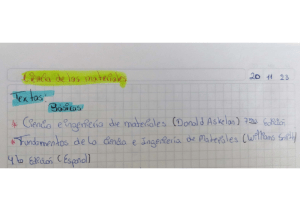 Ciencia de los materiales 20 11 23
Textos
Básicos
Ciencia e ingeniería de materiales (Donald Askelan)
Fundamentos de la ciencia e Ingeniería de Materiales (William Smith)
4to Edición (Español)